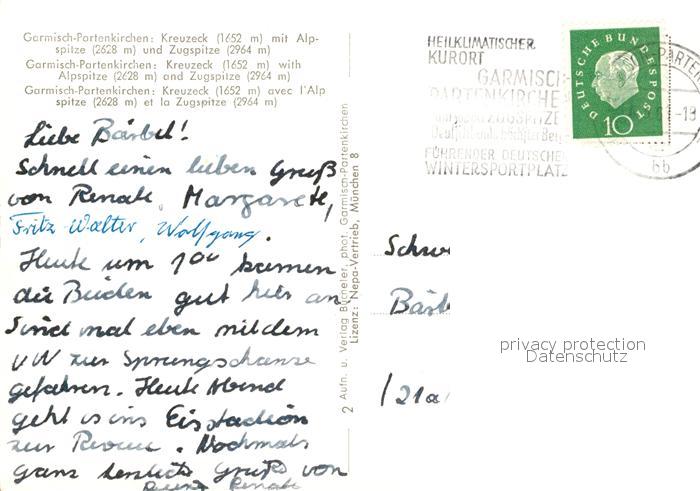 Garmisch-Partenkirchen: Kreuzeck (1652 m) mit Alp-
spitze (2628 m) und Zugspitze (2964 m)
Garmisch-Partenkirchen: Kreuzeck (1652 m) with
Alpspitze (2628 m) and Zugspitze (2964 m)
Garmisch-Partenkirchen: Kreuzeck (1652 m) avec l'Alp
spitze (2628 m) et la Zugspitze (2964 m)
Liebe Bärbel!
Schnell einen lieben Gruß
von Renate, Margarete,
Fritz Walter, Wolfgang.
Heute um 1⁰⁰ kamen
die Beiden gut hier an
Sind mal eben mit dem
VW zur Sprungschanze
gefahren. Heute Abend
geht es ins Eisstadion
zur Revue. Nochmals
ganz herzliche Grüße von
Renate
2 Aufn. u. Verlag Bücheler, phot. Garmisch-Partenkirchen
Lizenz: Nepa-Vertrieb, München 8
HEILKLIMATISCHER
KURORT
GARMISCH-
PARTENKIRCHEN
ZUGSPITZE
FÜHRENDER DEUTSCHER
WINTERSPORTPLATZ
DEUTSCHE BUNDESPOST
10
-18
bb
Schw
Bärb
(21a
privacy protection
Datenschutz